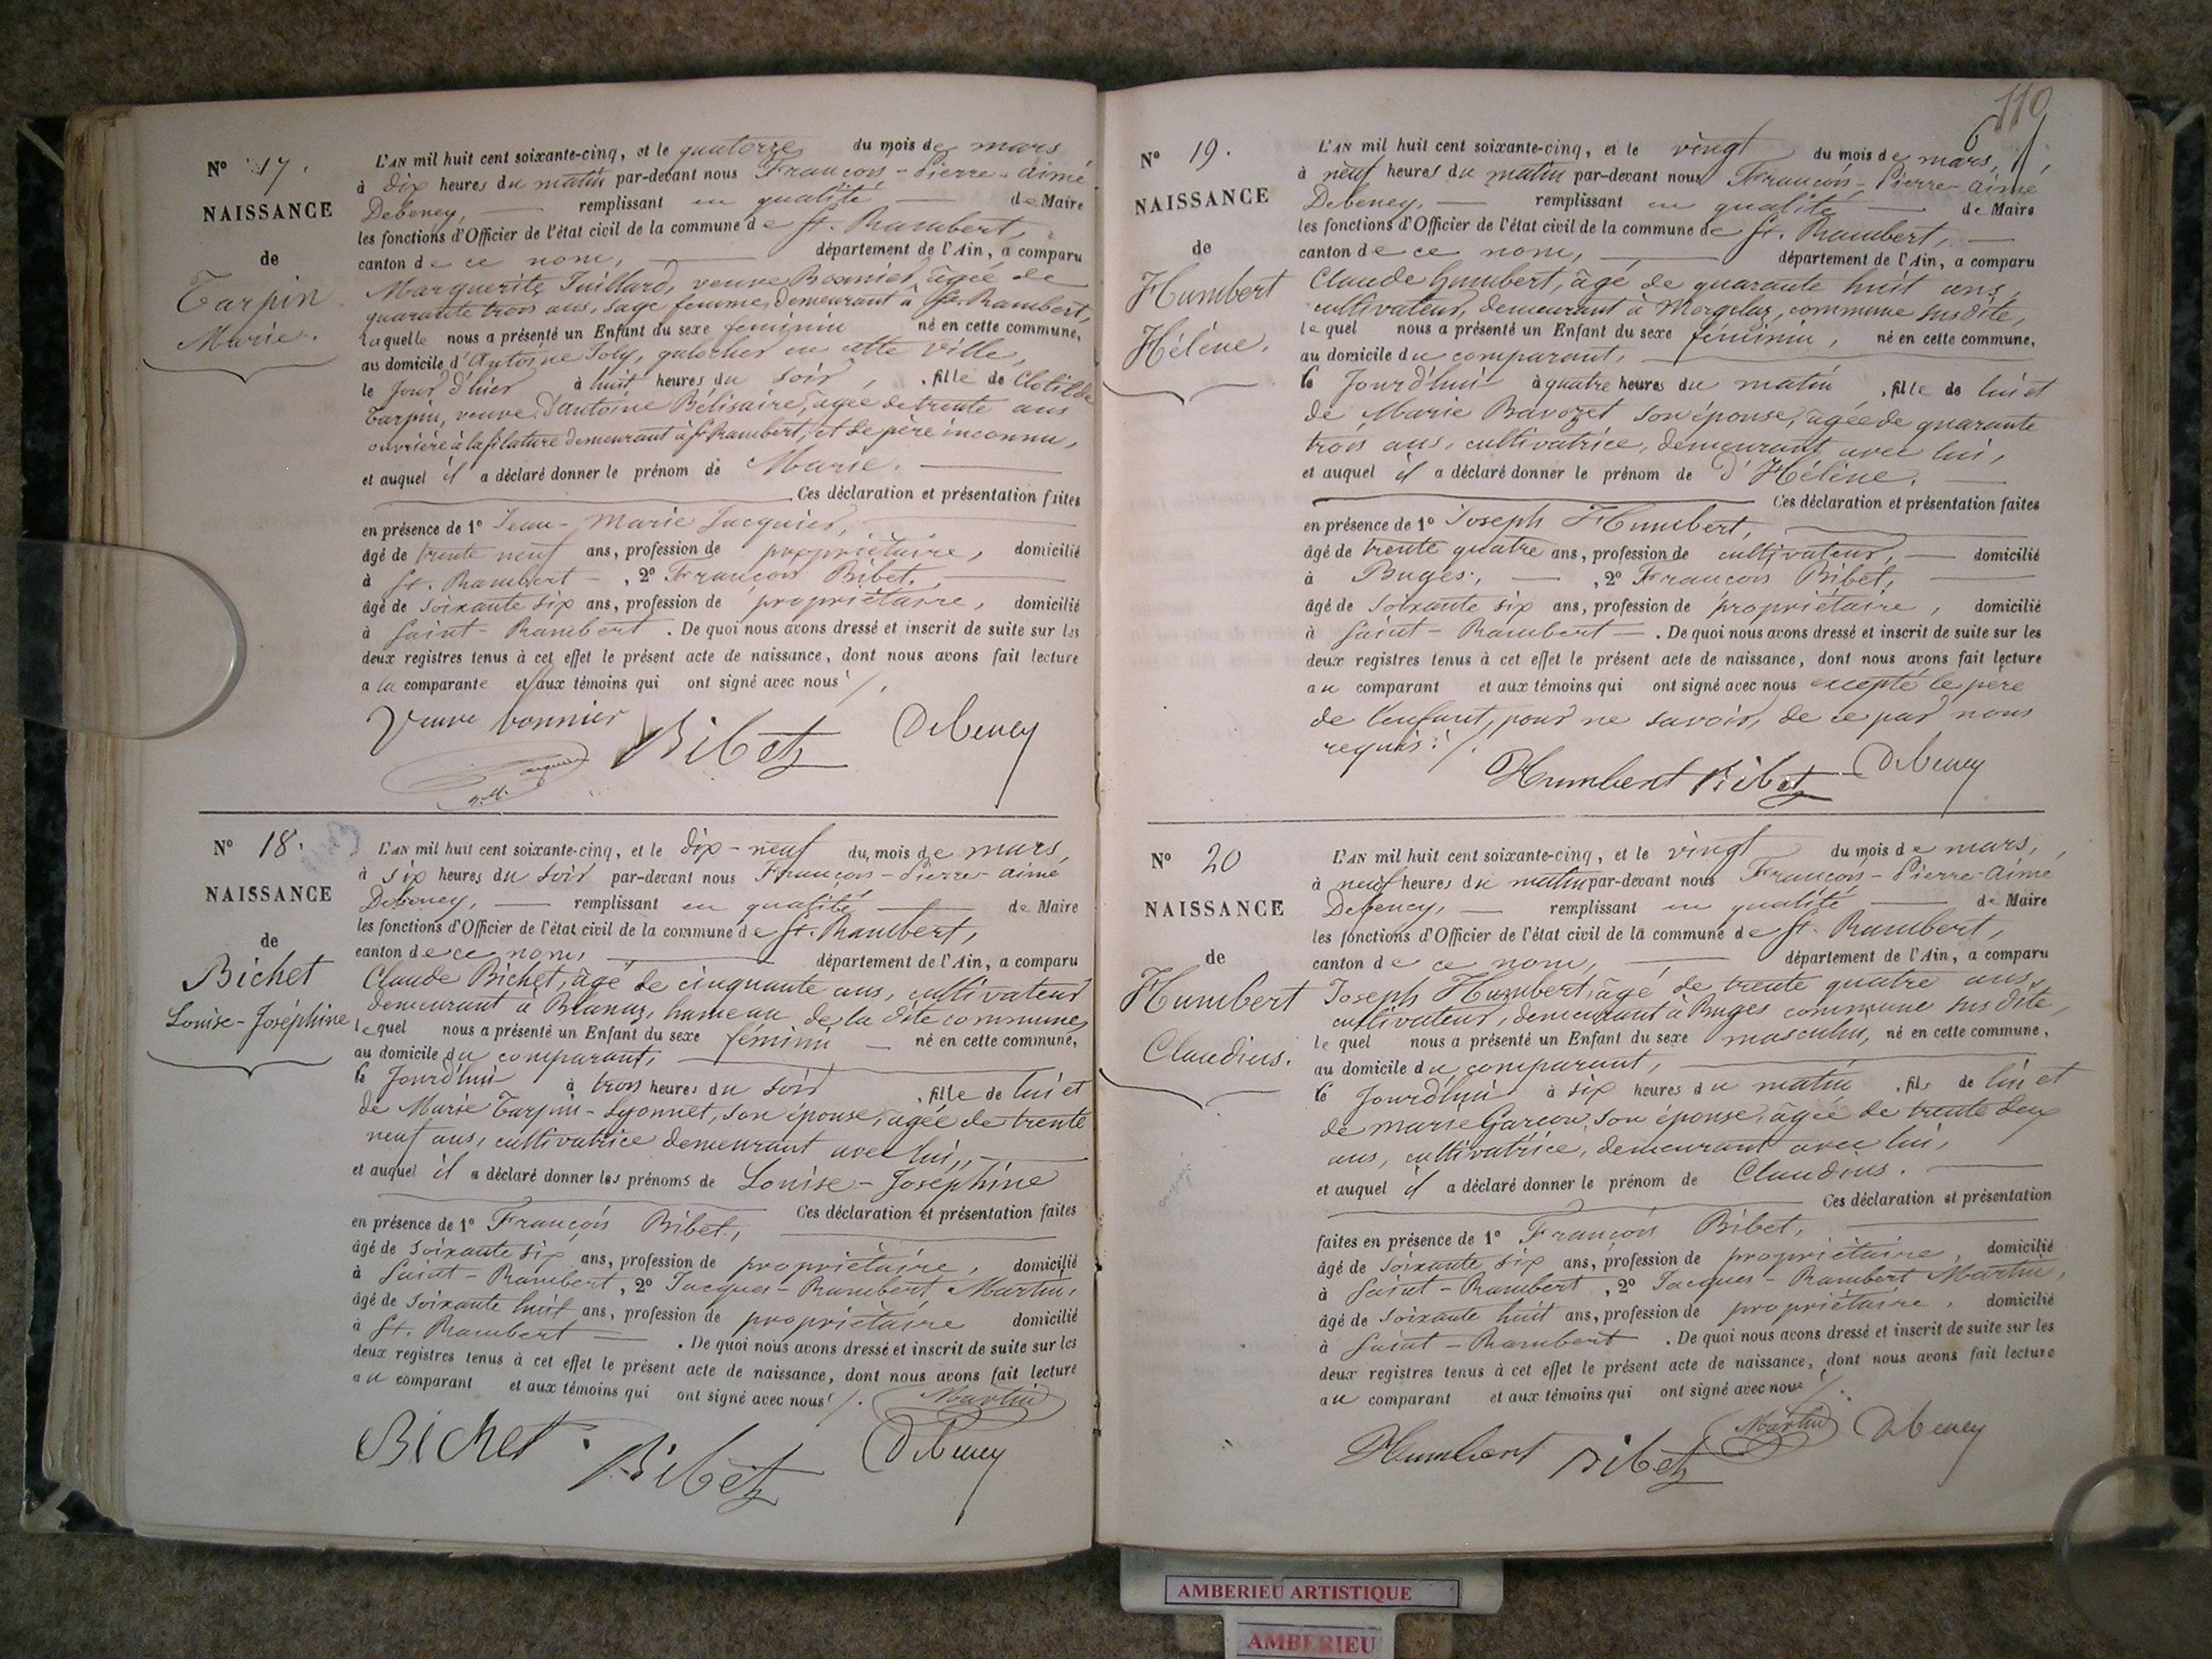 Nº 17.
NAISSANCE
de
Tarpin
Marie.
L'AN mil huit cent soixante-cinq, et le quatorze du mois de mars
à dix heures du matin par-devant nous François-Pierre-Aimé
Debeney, remplissant en qualité de Maire
les fonctions d'Officier de l'état civil de la commune de St. Rambert,
canton de ce nom, département de l'Ain, a comparu
Marguerite Juillard, veuve Bonnier, âgée de
quarante trois ans, sage femme, demeurant à St. Rambert,
laquelle nous a présenté un Enfant du sexe féminin né en cette commune,
au domicile d'Antoine Joly, galocher en cette ville,
le jour d'hier à huit heures du soir, fille de Clotilde
Tarpin, veuve d'antoine Bélisaire, âgée de trente ans
ouvrière à la filature demeurant à St Rambert, et de père inconnu,
et auquel il a déclaré donner le prénom de Marie.
Ces déclaration et présentation faites
en présence de 1º Jean-Marie Jacquier,
âgé de trente neuf ans, profession de propriétaire, domicilié
à St. Rambert, 2º François Bibet,
âgé de soixante six ans, profession de propriétaire, domicilié
à Saint-Rambert. De quoi nous avons dressé et inscrit de suite sur les
deux registres tenus à cet effet le présent acte de naissance, dont nous avons fait lecture
a la comparante et aux témoins qui ont signé avec nous /.
Veuve bonnier Bibet Debeney
Nº 18.
NAISSANCE
de
Bichet
Louise-Joséphine
L'AN mil huit cent soixante-cinq, et le dix-neuf du mois de mars,
à six heures du soir par-devant nous François-Pierre-aimé
Debeney, remplissant en qualité de Maire
les fonctions d'Officier de l'état civil de la commune de St. Rambert,
canton de ce nom, département de l'Ain, a comparu
Claude Bichet, âgé de cinquante ans, cultivateur
demeurant à Blanaz, hameau de la dite commune,
lequel nous a présenté un Enfant du sexe féminin né en cette commune,
au domicile du comparant,
le jourd'hui à trois heures du soir, fille de lui et
de Marie Tarpin-Lyonnet, son épouse, âgée de trente
neuf ans, cultivatrice demeurant avec lui,
et auquel il a déclaré donner les prénoms de Louise-Joséphine
Ces déclaration et présentation faites
en présence de 1º François Bibet,
âgé de soixante six ans, profession de propriétaire, domicilié
à Saint-Rambert, 2º Jacques-Rambert Martin,
âgé de soixante huit ans, profession de propriétaire domicilié
à St. Rambert. De quoi nous avons dressé et inscrit de suite sur les
deux registres tenus à cet effet le présent acte de naissance, dont nous avons fait lecture
au comparant et aux témoins qui ont signé avec nous /.
Martin
Bichet. Bibet Debeney
110
Nº 19.
NAISSANCE
de
Humbert
Hélène.
L'AN mil huit cent soixante-cinq, et le vingt du mois de mars,
à neuf heures du matin par-devant nous François-Pierre-aimé
Debeney, remplissant en qualité de Maire
les fonctions d'Officier de l'état civil de la commune de St. Rambert,
canton de ce nom, département de l'Ain, a comparu
Claude humbert, âgé de quarante huit ans,
cultivateur, demeurant à Morgelaz, commune susdite,
lequel nous a présenté un Enfant du sexe féminin, né en cette commune,
au domicile du comparant,
le jourd'hui à quatre heures du matin, fille de lui et
de Marie Bavozet son épouse, âgée de quarante
trois ans, cultivatrice, demeurant avec lui,
et auquel il a déclaré donner le prénom de d'Hélène.
Ces déclaration et présentation faites
en présence de 1º Joseph Humbert,
âgé de trente quatre ans, profession de cultivateur, domicilié
à Buges, 2º François Bibet,
âgé de soixante six ans, profession de propriétaire, domicilié
à Saint-Rambert. De quoi nous avons dressé et inscrit de suite sur les
deux registres tenus à cet effet le présent acte de naissance, dont nous avons fait lecture
au comparant et aux témoins qui ont signé avec nous excepté le père
de l'enfant, pour ne savoir, de ce par nous
requis /.
Humbert Bibet Debeney
Nº 20
NAISSANCE
de
Humbert
Claudius.
L'AN mil huit cent soixante-cinq, et le vingt du mois de mars,
à neuf heures du matin par-devant nous François-Pierre-Aimé
Debeney, remplissant en qualité de Maire
les fonctions d'Officier de l'état civil de la commune de St. Rambert,
canton de ce nom, département de l'Ain, a comparu
Joseph Humbert, âgé de trente quatre ans,
cultivateur, demeurant à Buges commune susdite,
lequel nous a présenté un Enfant du sexe masculin, né en cette commune,
au domicile du comparant,
le jourd'hui à six heures du matin, fils de lui et
de marie Garcon, son épouse, âgée de trente deux
ans, cultivatrice, demeurant avec lui,
et auquel il a déclaré donner le prénom de Claudius.
Ces déclaration et présentation
faites en présence de 1º François Bibet,
âgé de soixante six ans, profession de propriétaire, domicilié
à Saint-Rambert, 2º Jacques-Rambert Martin,
âgé de soixante huit ans, profession de propriétaire, domicilié
à Saint-Rambert. De quoi nous avons dressé et inscrit de suite sur les
deux registres tenus à cet effet le présent acte de naissance, dont nous avons fait lecture
au comparant et aux témoins qui ont signé avec nous /.
Humbert Bibet Martin Debeney
AMBERIEU ARTISTIQUE
AMBERIEU